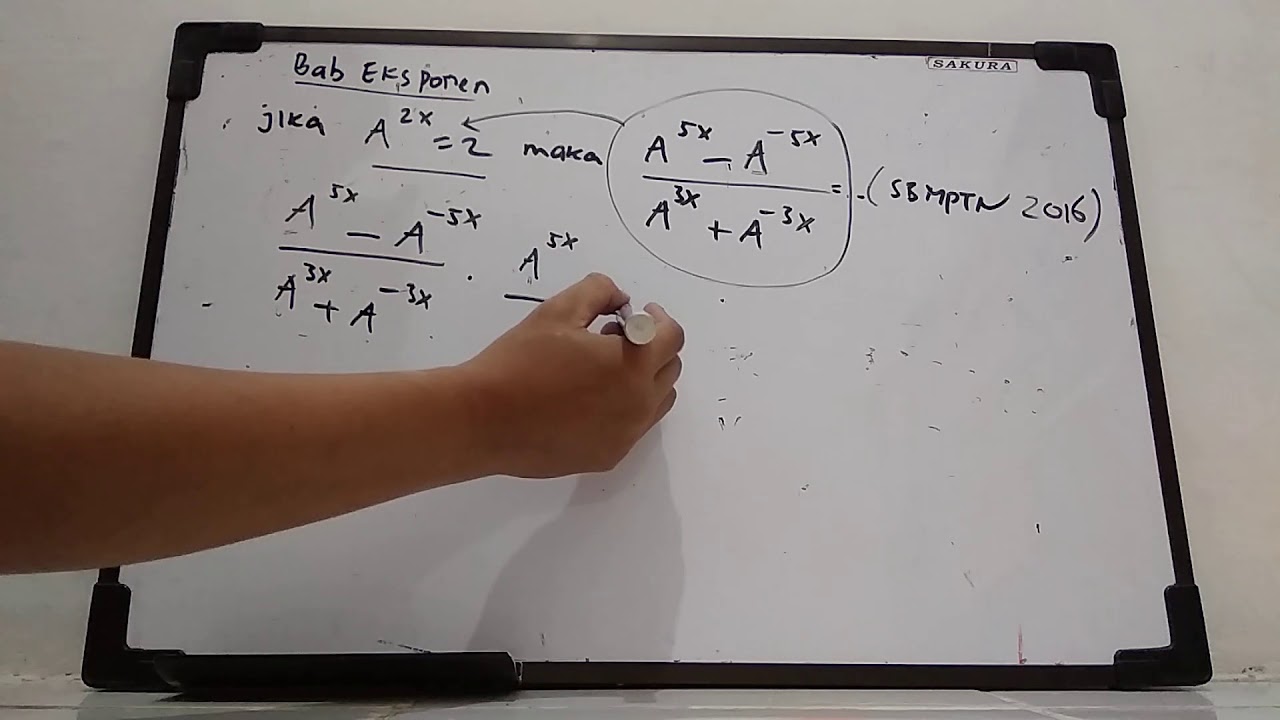 SAKURA
Bab Eksponen
jika A^2x = 2 maka (A^5x − A^−5x)/(A^3x + A^−3x) = .. (SBMPTN 2016)
(A^5x − A^−5x)/(A^3x + A^−3x) . A^5x